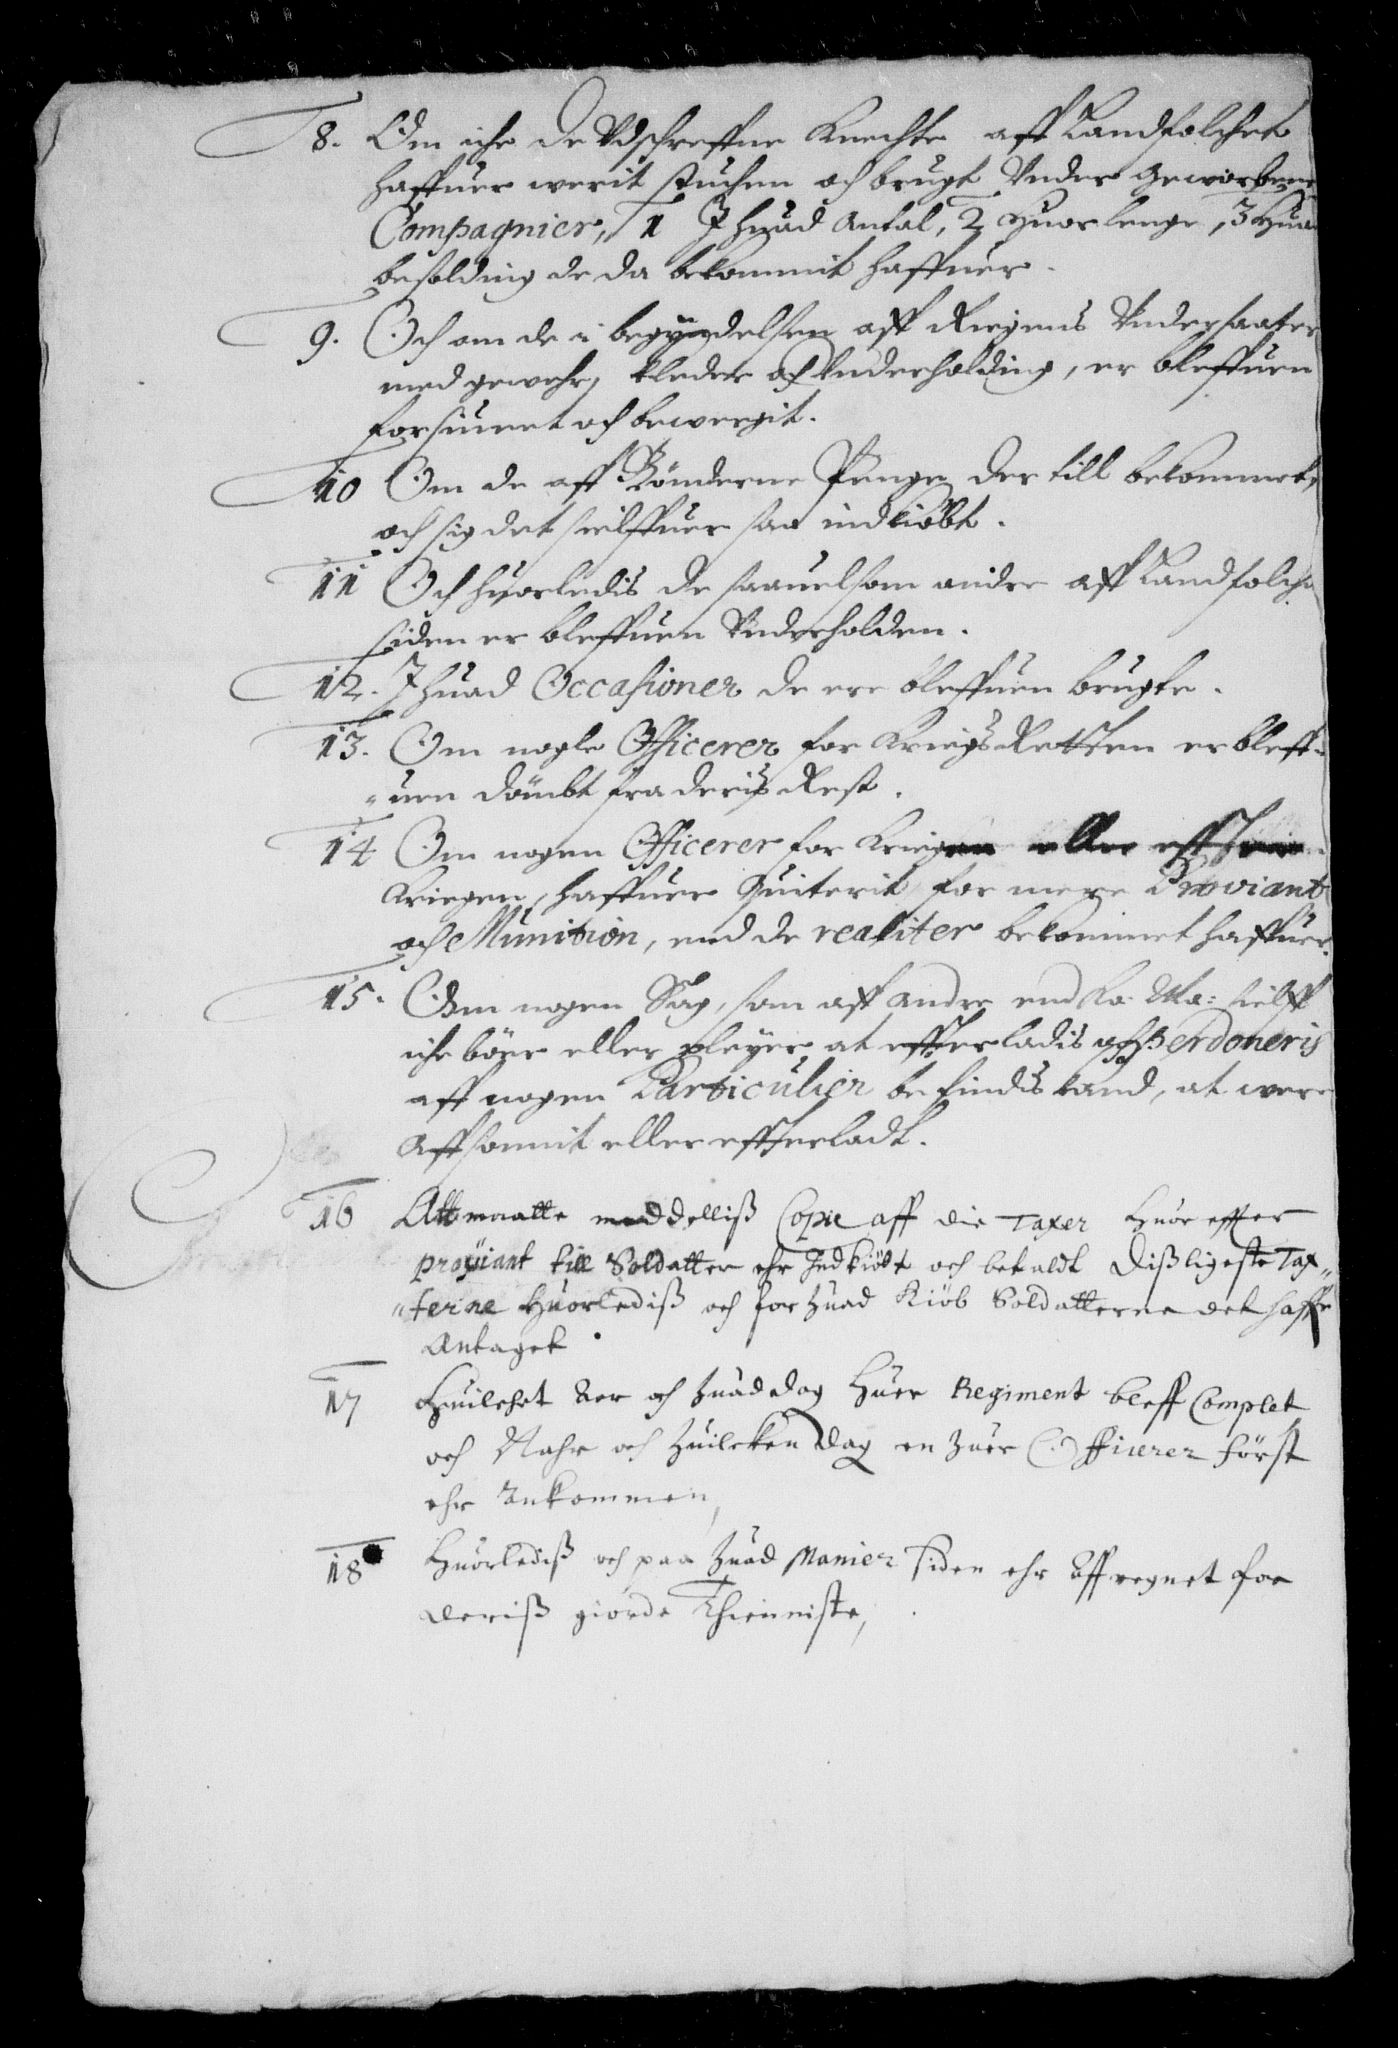 8. Om iche de Vdschreffne Knechte aff Landfolchet
haffuer werit stuchen och brugt Vnder geworbene
Compagnier, 1 J huad Antal, 2 Huor lenge, 3 Huad
besolding de da bekommit haffuer.
9. Och om de i begyndelsen aff Riegens Vndersaater
med gewehr, kleder och Vnderholding, er bleffuen
forsiunet och bewergit.
10 Om de aff Bönderne Penge der till bekommet,
och sig det sielffuer saa indkiöbt.
11 Och huorledis de saauelsom andre aff Landfolche
siden er bleffuen Vnderholden.
12. J huad Occasioner de ere bleffuen brugte.
13. Om nogle Officerer for Kriegs Retten er bleff-
uen dömbt fra deris Rest.
14 Om nogen Officerer for Kriegen eller effter
Kriegen, haffuer Quiterit for mere Proviant
och Munition, end de realiter bekommet haffuer.
15. Om nogen Sag, som aff andre end Ko. Ma: sielff
iche bör eller pleyer at effterladis och Perdoneris
aff nogen Particulier befindis kand, at were
Affsonnit eller effterladt.
16 Att maatte meddelliß Copie aff die Taxer Huor effter
proviant till Soldatter ehr Indkiöbt och betaldt Dißligeste Tax„
„terne Huorlediß och for huad Kiöb Soldatterne det haffr
Antaget
17 Huilchet Aer och huad dag Huer Regiment bleff Complet
och Nahr och huilcken Dag en huer Officerer först
ehr Ankommen,
18 Huorlediß och paa huad Manier siden ehr Affregnet for
deriß giorde Thienniste,